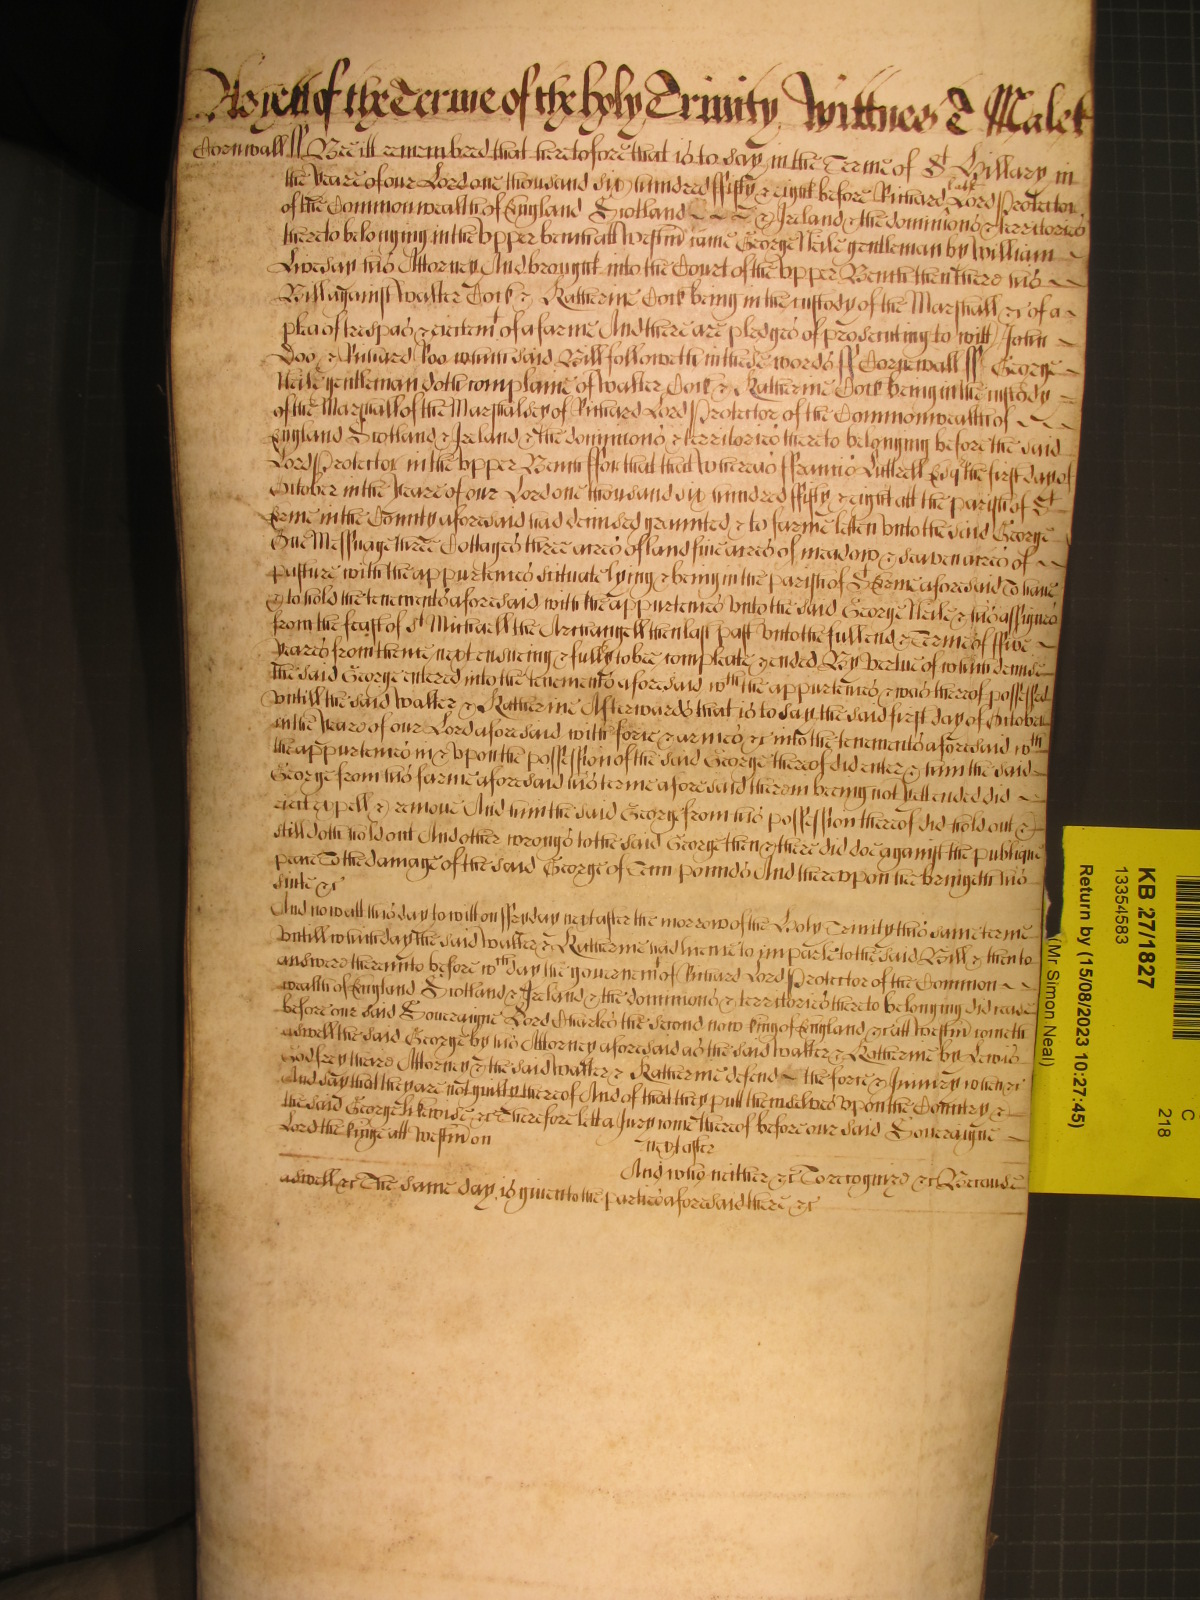 As yett of the Terme of the holy Trinity Wittnes T Malet
Cornwall ss Bee itt remembred that heretofore that is to say in the Terme of St Hillary in
the yeare of our Lord one thousand six hundred ffifty & eight before Richard late Lord Protector
of the Commonwealth of England Scotland & Ireland & the dominions & territories
thereto belonging in the upper bench att Westm came George Neile gentleman by William
Livesay his Attorney And brought into the Court of the upper Bench then there his
Bill against Walter Cock & Katherine Cock being in the custody of the Marshall &c of a
plea of trespas & eiectemt of a farme And there are pledges of prosecuting to witt John
Doo & Richard Roo which said Bill followeth in these words ss Cornewall ss George
Neile gentleman doth complaine of Walter Cock & Katherine Cock being in the custody
of the Marshall of the Marshalsey of Richard Lord Protector of the Commonwealth of
England Scotland & Ireland & the dominions & territories thereto belonging before the said
Lord Protector in the upper Bench ffor that that Whereas ffrancis Luttrell Esqr the first day of
October in the yeare of our Lord one thousand six hundred ffifty & eight att the parish of St
Erme in the County aforesaid had demised graunted & to farme letten unto the said George
One Messuage three Cottages three acres of land five acres of meadow & seaven acres of
pasture with the appurtences situate lying & being in the parish of St Erme aforesaid To have
& to hold the tenements aforesaid with the appurtences unto the said George Neile & his assignes
from the feast of St Michaell the Archangell then last past unto the full end & Terme of ffive
yeares from thence next ensueing & fully to bee compleate & ended By vertue of which demise
the said George entered into the tenements aforesaid wth the appurtences & was thereof possessed
untill the said Walter & Katherine Afterwards that is to say the said first day of October
in the yeare of our Lord aforesaid with force & armes &c into the tenements aforesaid wth
the appurtences in & upon the possession of the said George thereof did enter & him the said
George from his farme aforesaid his terme aforesaid therein beeing not yett ended did
eiect expell & remove And him the said George from his possession thereof did hold out &
still doth hold out And other wrongs to the said George then & there did doe against the publique
peace To the damage of the said George of Tenn pounds And thereupon hee bringeth his
suite &c
And now att this day to witt on ffryday next after the morrow of the Holy Trinity this same terme
untill which day the said Walter & Katherine had licence to imparle to the said Bill & then to
answere thereunto before wth day the governemt of Richard Lord Protector of the Common
wealth of England Scotland & Ireland & the dominions & territories thereto belonging did cease
before our said Soveraigne Lord Charles the second now king of England &c att Westm cometh
aswell the said George by his Attorney aforesaid as the said Walter & Katherine by Lewis
Godfrey there Attorney & the said Walter & Katherine defend the force & Iniury when &c
And say that they are not guilty thereof And of that they putt themselves upon the Country &
the said George likewise &c Therefore lett a Jury come thereof before our said Soveraigne
Lord the kinge att Westm on next after
And who neither &c To recognize &c Because
aswell &c The same day is given to the parties aforesaid there &c
KB 27/1827
13354583
Return by (15/08/2023 10:27:45)
(Mr Simon Neal)
C
218